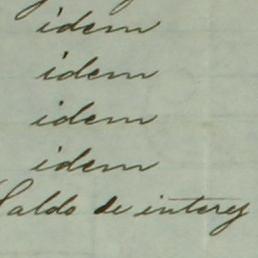 idem
idem
idem
idem
Saldo de interes